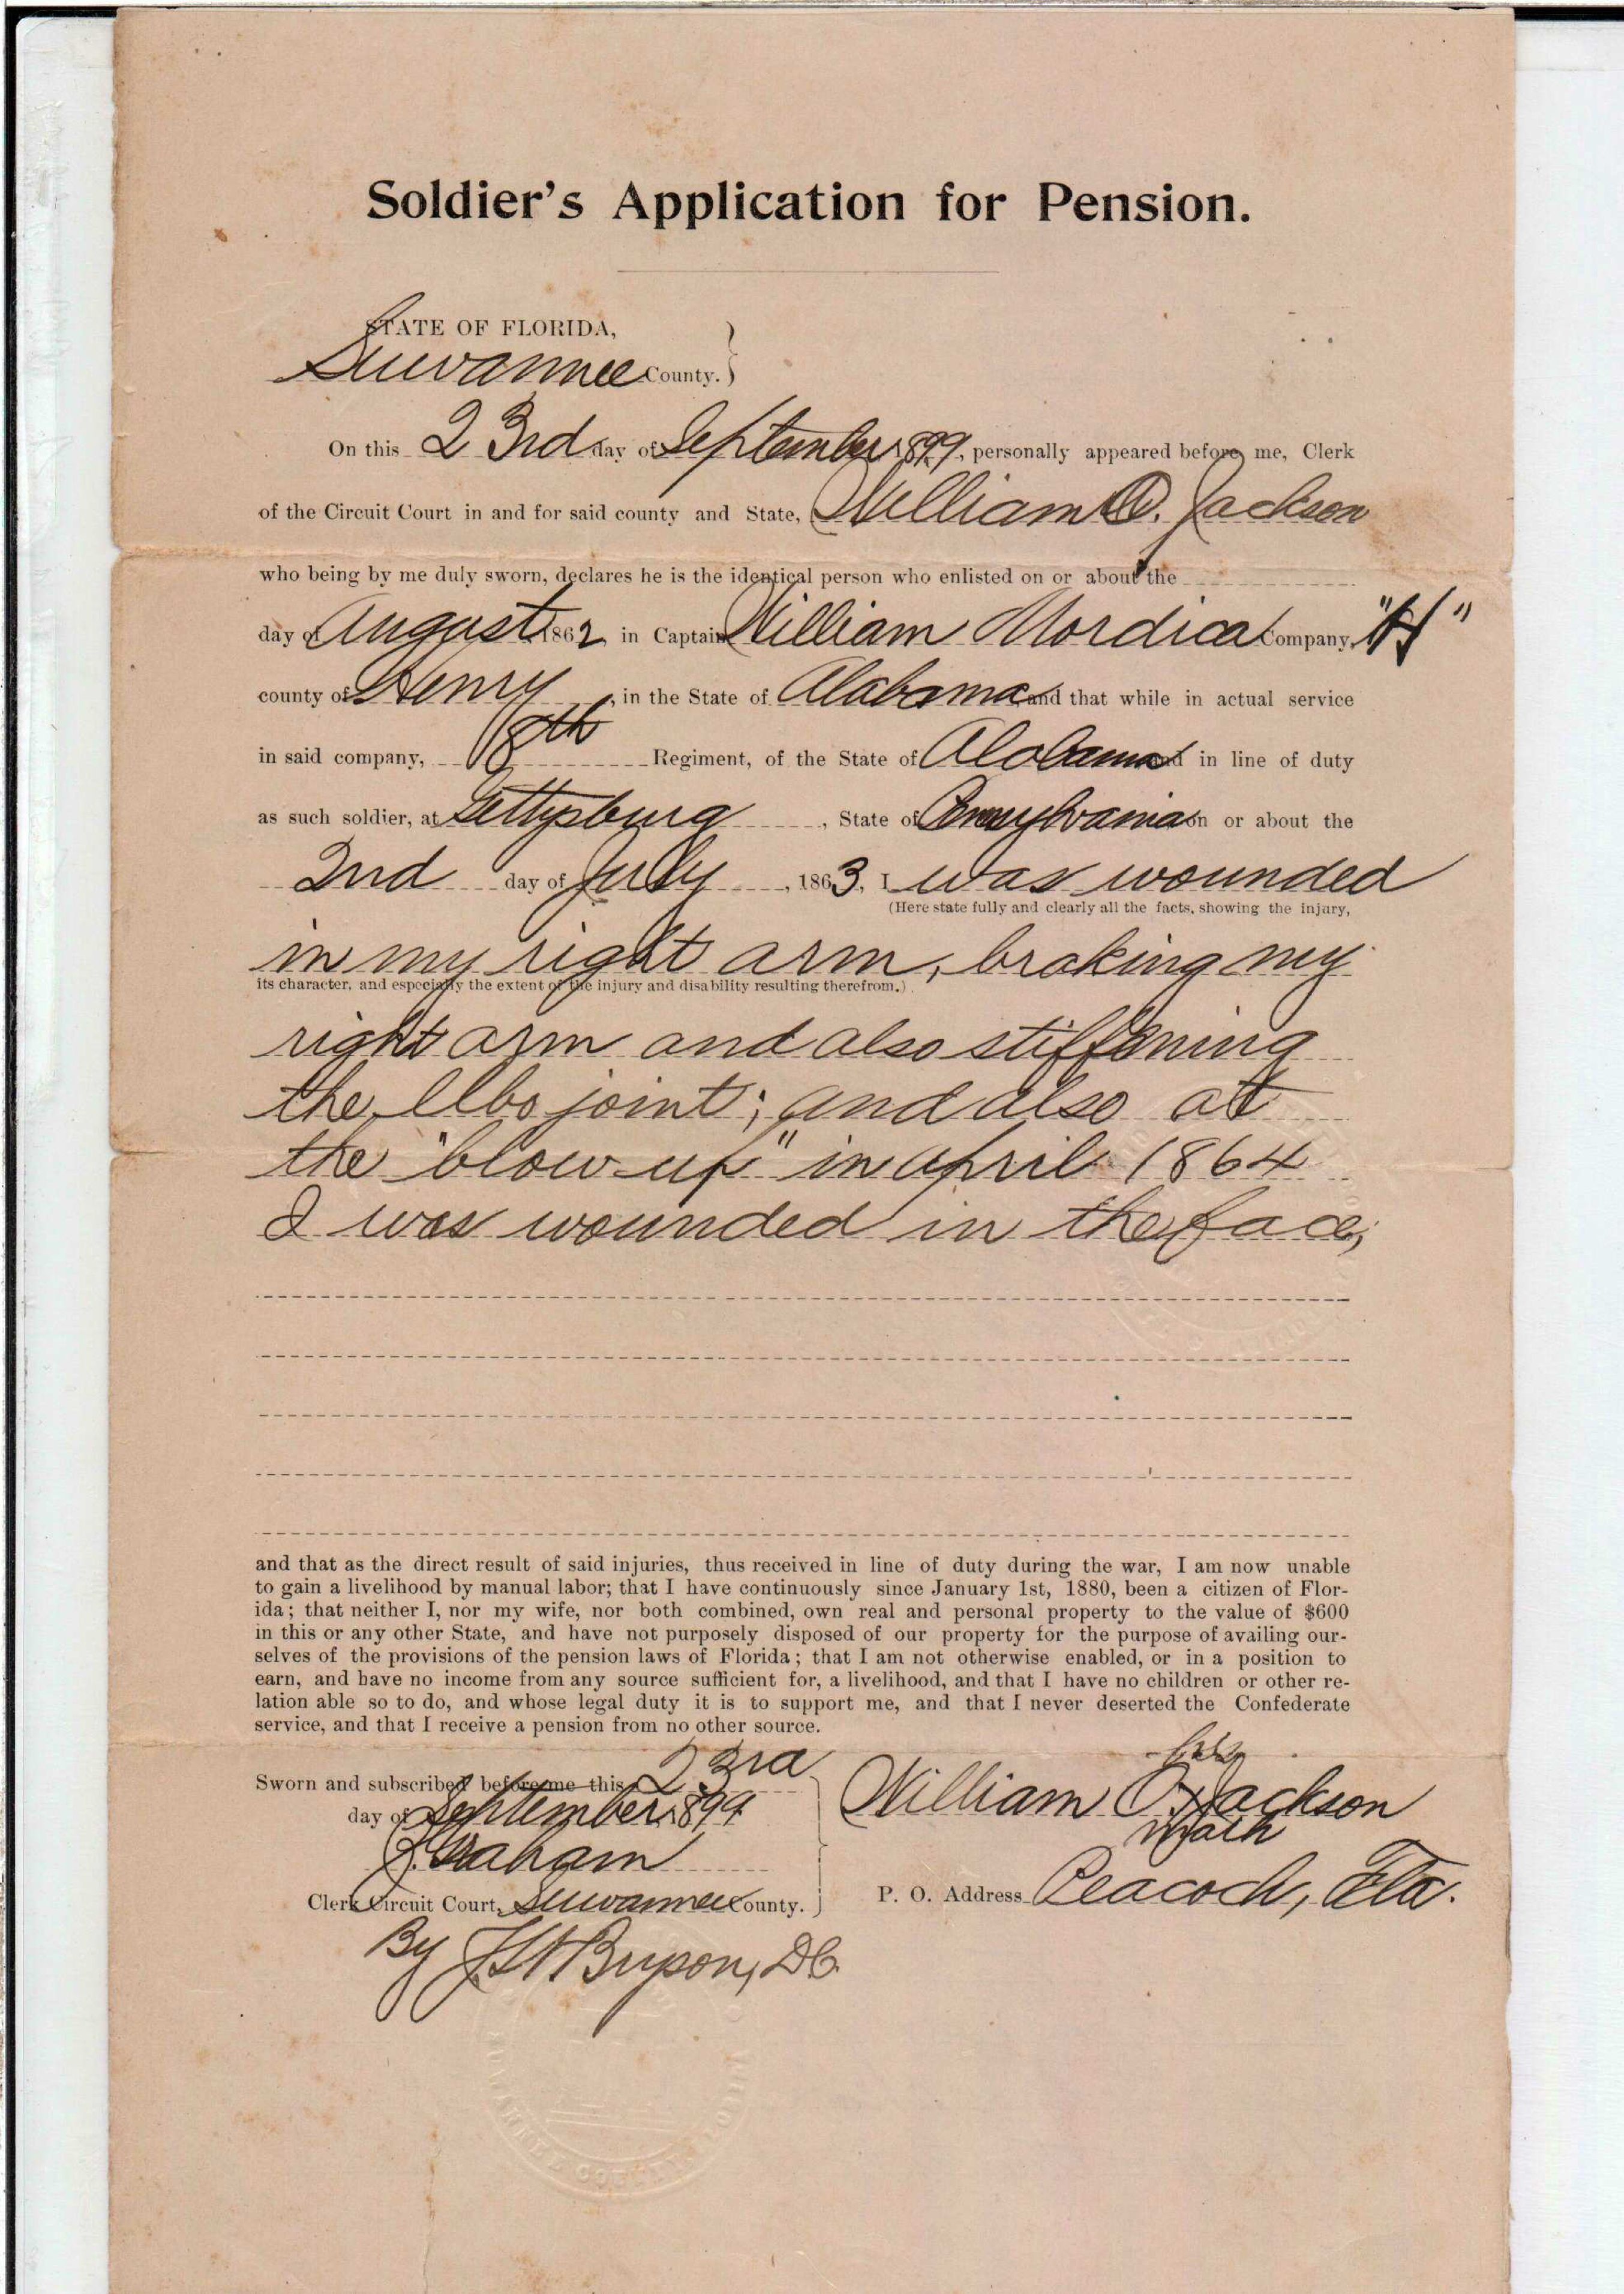 Soldier's Application for Pension.
STATE OF FLORIDA,
Suwannee County.
On this 23rd day of September 1899, personally appeared before me, Clerk
of the Circuit Court in and for said county and State, William O. Jackson
who being by me duly sworn, declares he is the identical person who enlisted on or about the
day of August 1862 in Captain William Mordica Company, "H"
county of Henry, in the State of Alabama and that while in actual service
in said company, 8th Regiment, of the State of Alabama and in line of duty
as such soldier, at Gettysburg, State of Pennsylvania on or about the
2nd day of July, 1863, I was wounded
(Here state fully and clearly all the facts, showing the injury,
in my right arm, braking my
its character, and especially the extent of the injury and disability resulting therefrom.)
right arm and also stiffening
the elbo joint; and also at
the "blow-up" in april 1864
I was wounded in the face;
and that as the direct result of said injuries, thus received in line of duty during the war, I am now unable
to gain a livelihood by manual labor; that I have continuously since January 1st, 1880, been a citizen of Flor-
ida; that neither I, nor my wife, nor both combined, own real and personal property to the value of $600
in this or any other State, and have not purposely disposed of our property for the purpose of availing our-
selves of the provisions of the pension laws of Florida; that I am not otherwise enabled, or in a position to
earn, and have no income from any source sufficient for, a livelihood, and that I have no children or other re-
lation able so to do, and whose legal duty it is to support me, and that I never deserted the Confederate
service, and that I receive a pension from no other source.
Sworn and subscribed before me this 23rd
day of September 1899
his
William O. x Jackson
mark
Clerk Circuit Court, Suwannee County.
P. O. Address Peacock, Fla.
By Bryson, DC.